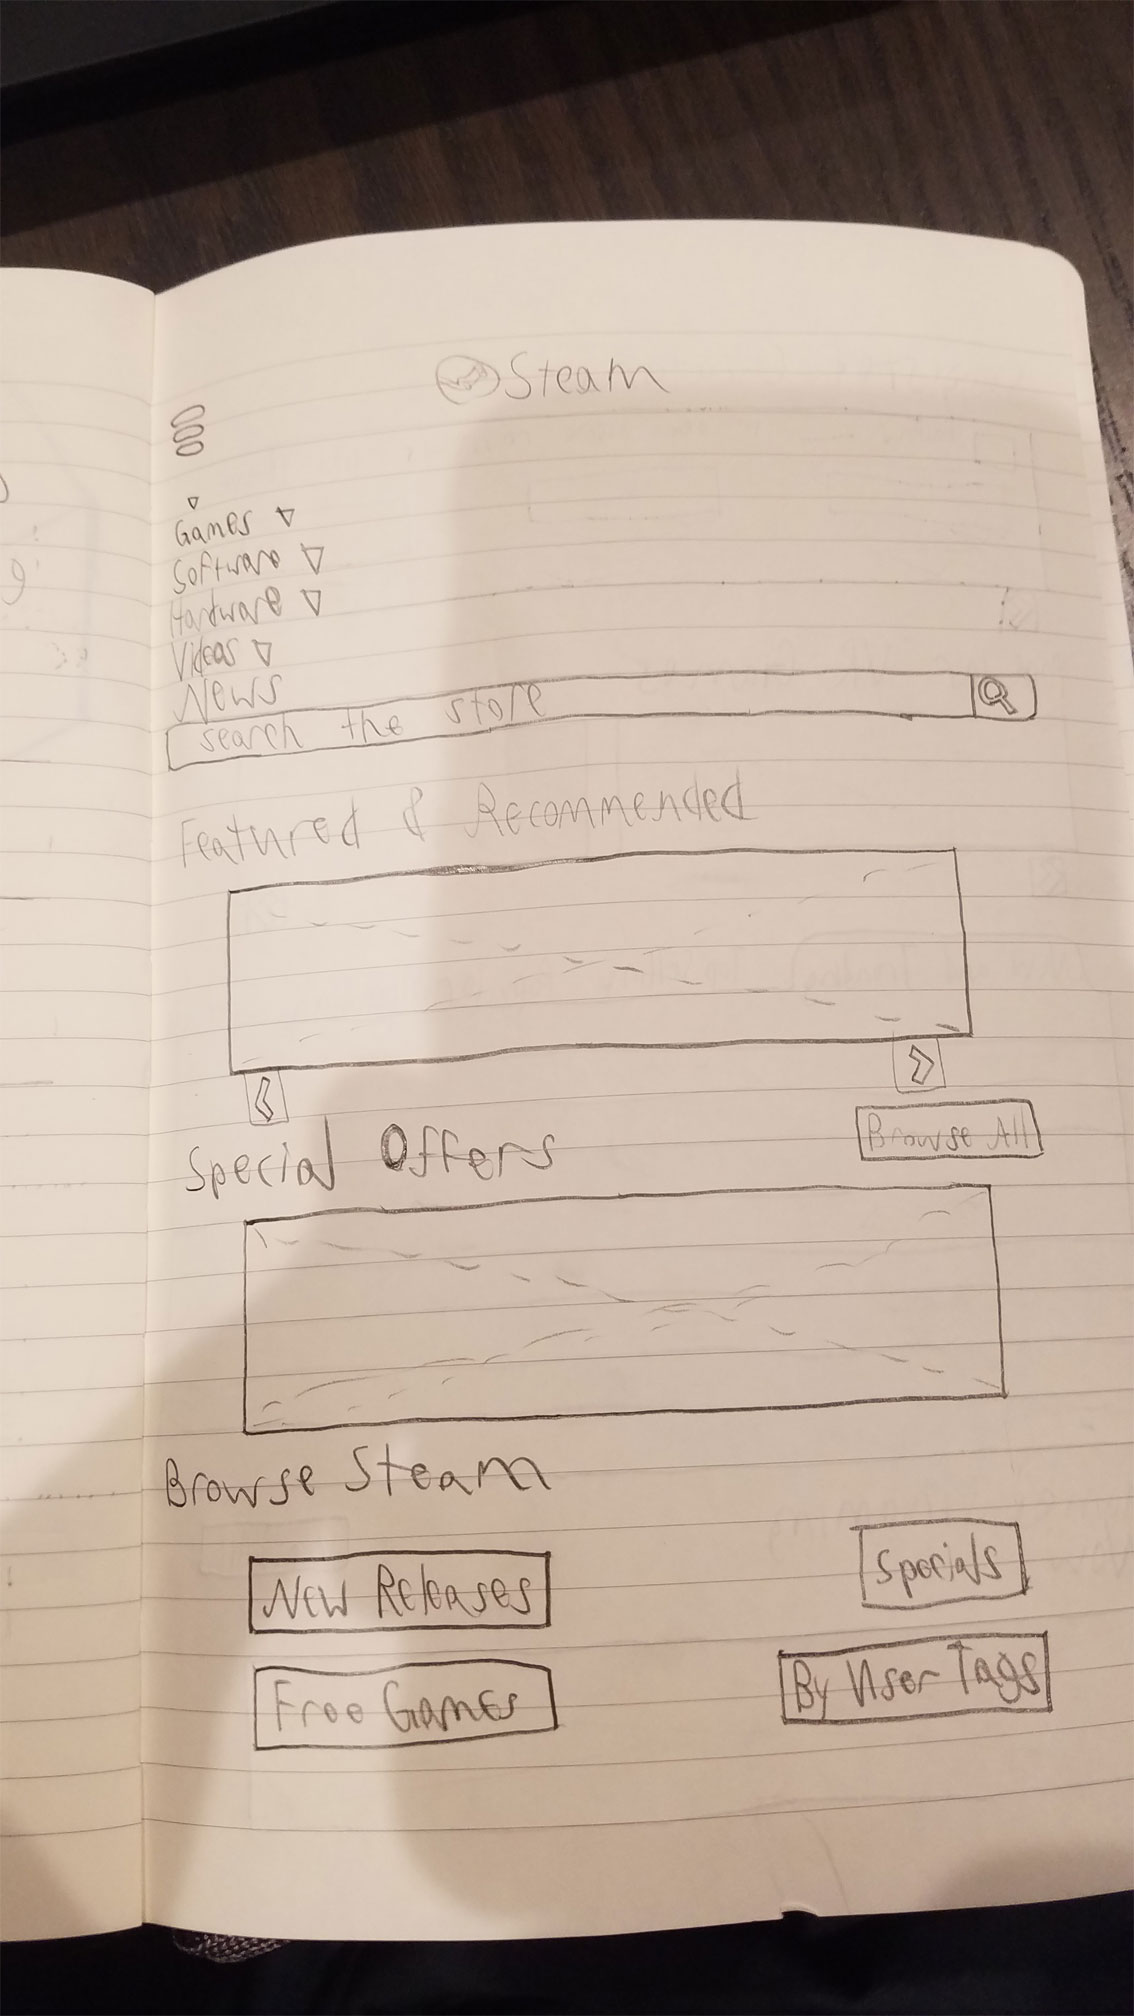 Steam
Games
Software
Hardware
Videos
News
search the store
Featured & Recommended
Special Offers
Browse All
Browse Steam
New Releases
Specials
Free Games
By User Tags